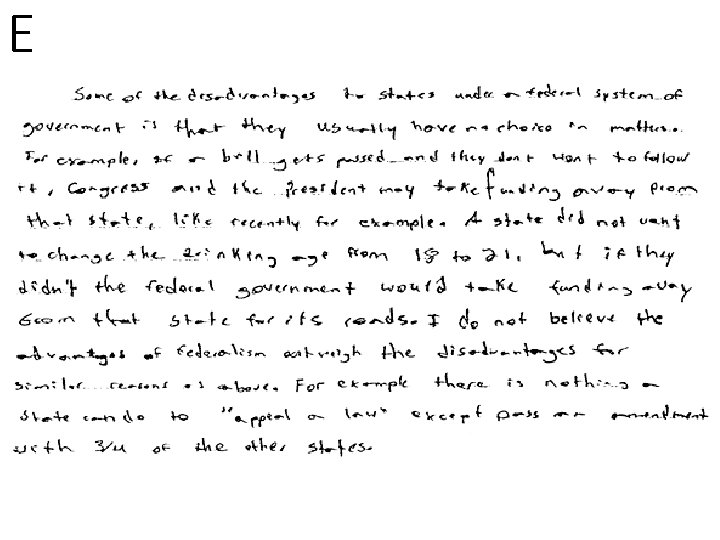 E
Some of the disadvantages to states under a federal system of
government is that they usually have no choice in matters.
For example, if a bill gets passed and they don't want to follow
it, Congress and the President may take funding away from
that state, like recently for example. A state did not want
to change the drinking age from 18 to 21, but if they
didn't the federal government would take funding away
from that state for its roads. I do not believe the
advantages of federalism outweigh the disadvantages for
similar reasons as above. For example there is nothing a
state can do to "appeal a law" except pass an amendment
with 3/4 of the other states.